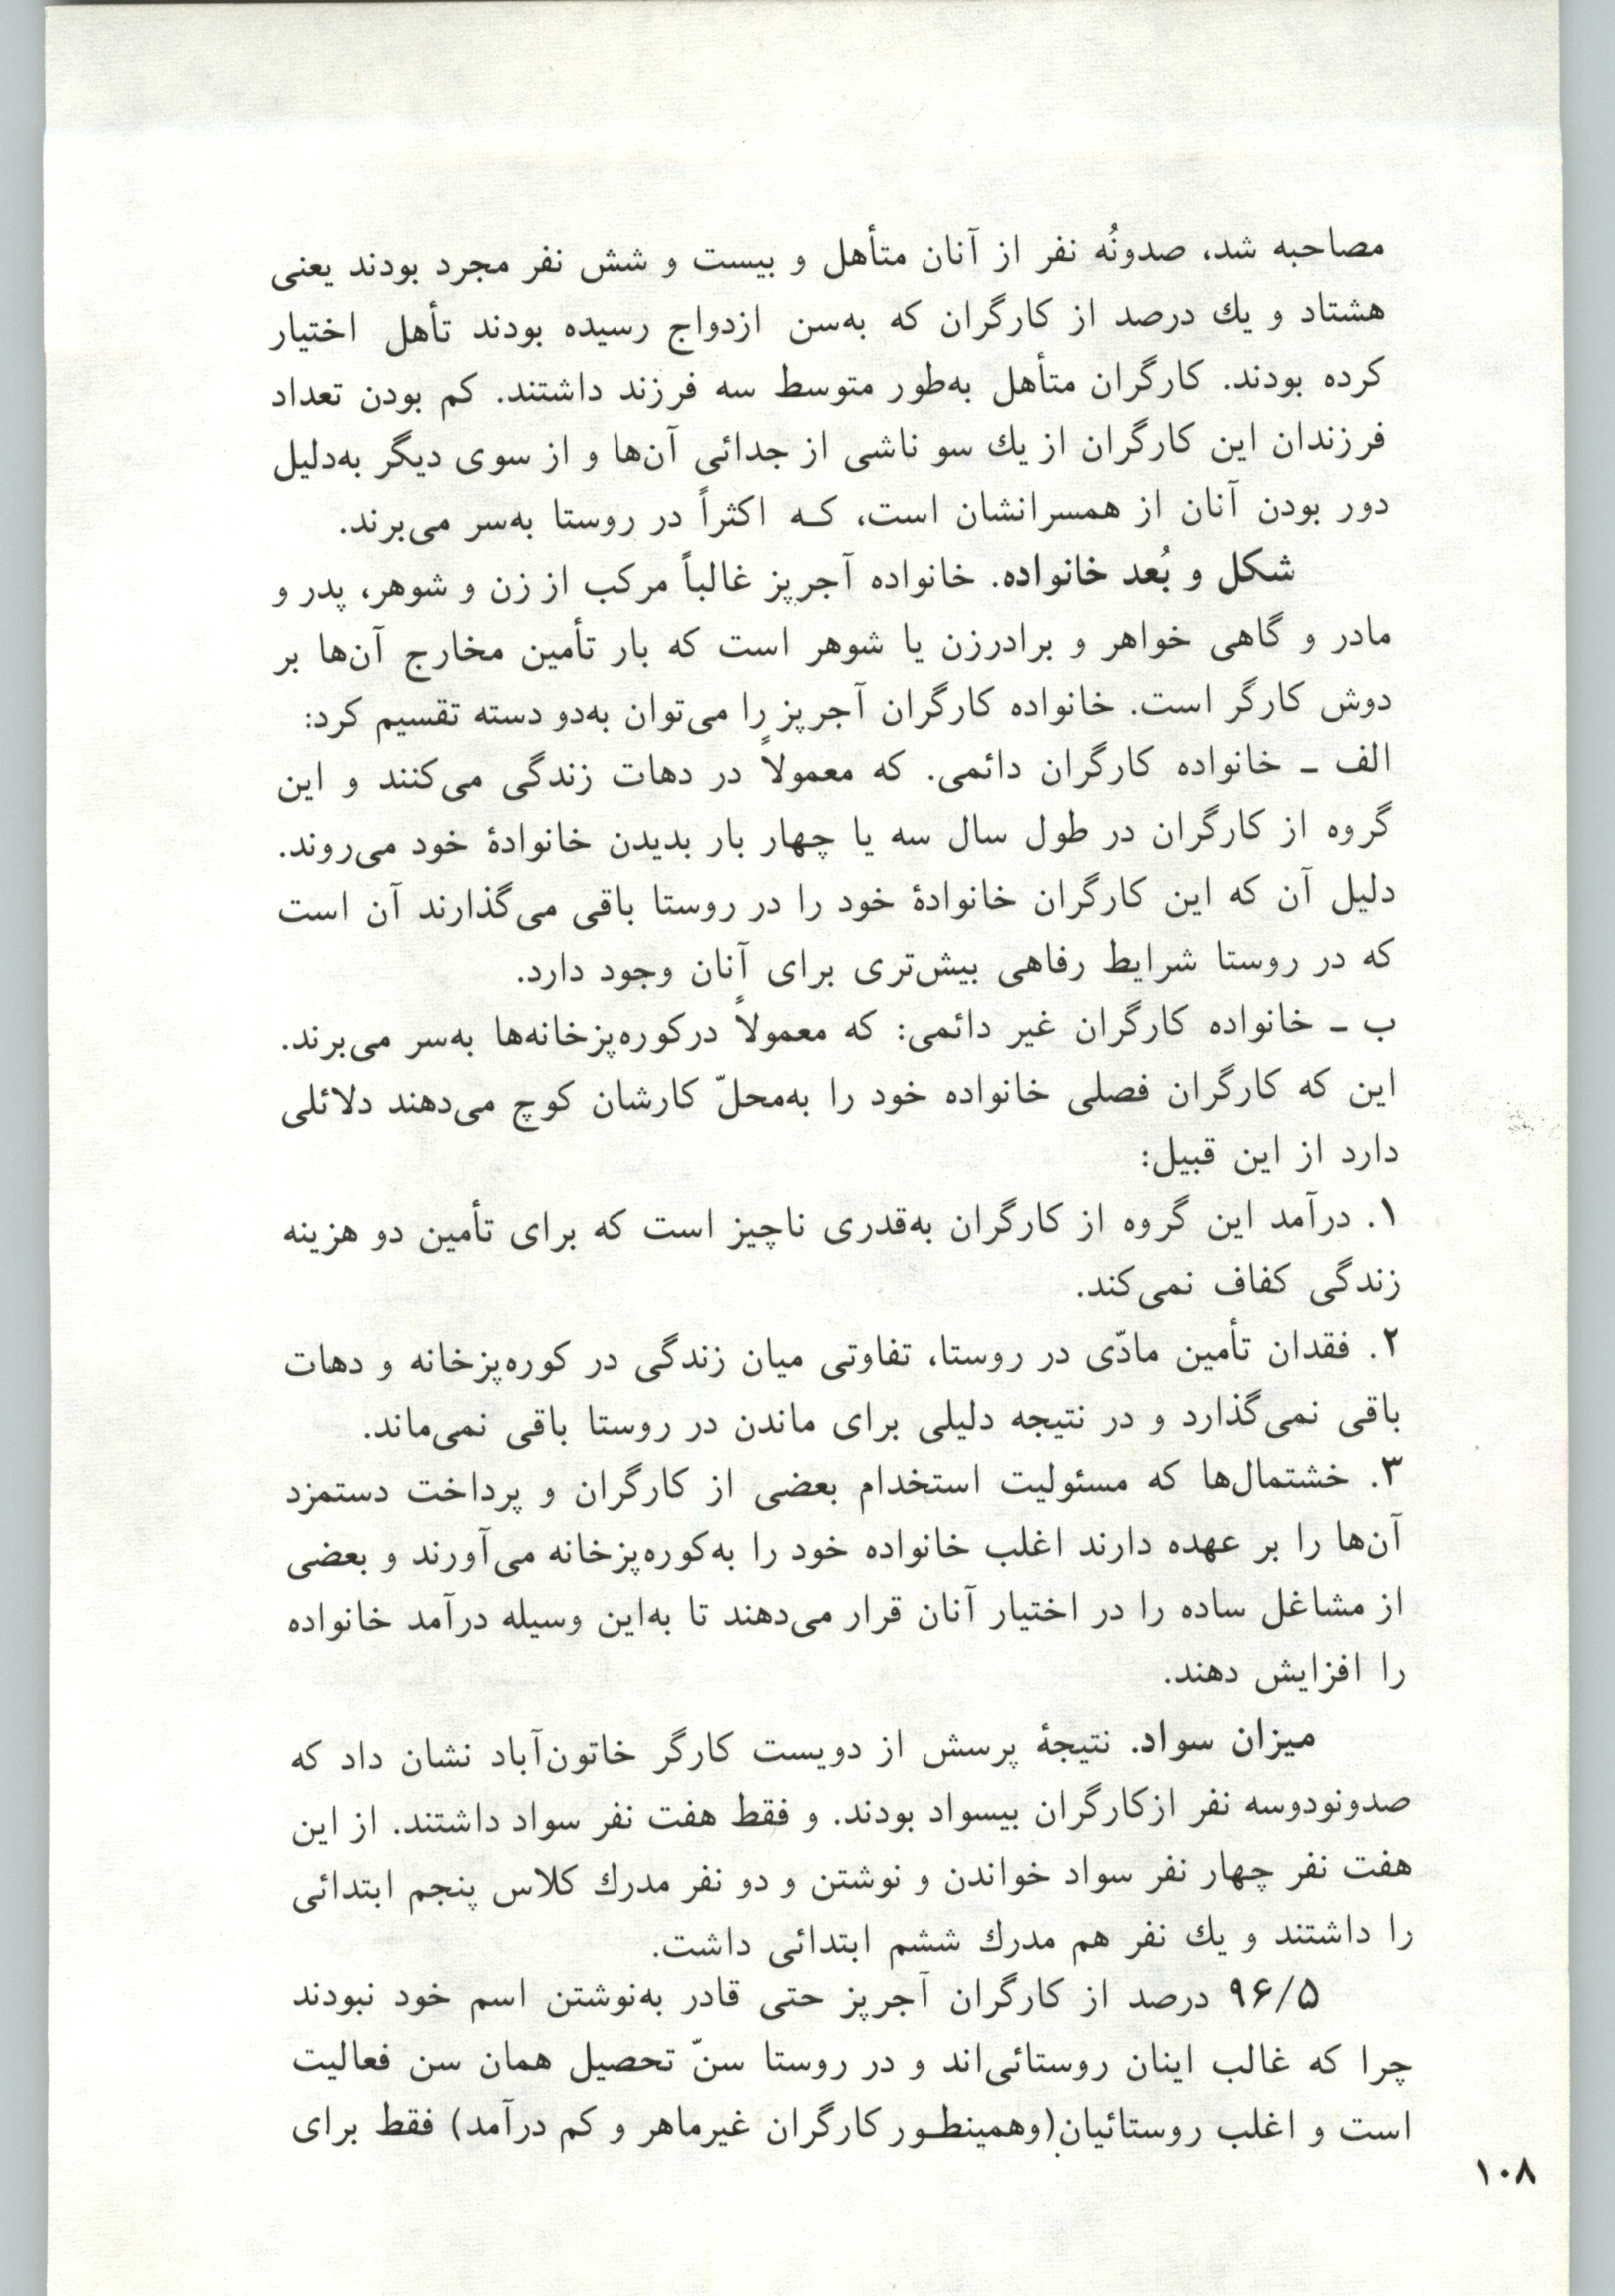 مصاحبه شد، صدونُه نفر از آنان متأهل و بیست و شش نفر مجرد بودند یعنی
هشتاد و یك درصد از کارگران که به‌سن ازدواج رسیده بودند تأهل اختیار
کرده بودند. کارگران متأهل به‌طور متوسط سه فرزند داشتند. کم بودن تعداد
فرزندان این کارگران از یك سو ناشی از جدائی آن‌ها و از سوی دیگر به‌دلیل
دور بودن آنان از همسرانشان است، کـه اکثراً در روستا به‌سر می‌برند.
شکل و بُعد خانواده. خانواده آجرپز غالباً مرکب از زن و شوهر، پدر و
مادر و گاهی خواهر و برادرزن یا شوهر است که بار تأمین مخارج آن‌ها بر
دوش کارگر است. خانواده کارگران آجرپز را می‌توان به‌دو دسته تقسیم کرد:
الف ـ خانواده کارگران دائمی. که معمولاً در دهات زندگی می‌کنند و این
گروه از کارگران در طول سال سه یا چهار بار بدیدن خانوادهٔ خود می‌روند.
دلیل آن که این کارگران خانوادهٔ خود را در روستا باقی می‌گذارند آن است
که در روستا شرایط رفاهی بیش‌تری برای آنان وجود دارد.
ب ـ خانواده کارگران غیر دائمی: که معمولاً درکوره‌پزخانه‌ها به‌سر می‌برند.
این که کارگران فصلی خانواده خود را به‌محلّ کارشان کوچ می‌دهند دلائلی
دارد از این قبیل:
۱. درآمد این گروه از کارگران به‌قدری ناچیز است که برای تأمین دو هزینه
زندگی کفاف نمی‌کند.
۲. فقدان تأمین مادّی در روستا، تفاوتی میان زندگی در کوره‌پزخانه و دهات
باقی نمی‌گذارد و در نتیجه دلیلی برای ماندن در روستا باقی نمی‌ماند.
۳. خشتمال‌ها که مسئولیت استخدام بعضی از کارگران و پرداخت دستمزد
آن‌ها را بر عهده دارند اغلب خانواده خود را به‌کوره‌پزخانه می‌آورند و بعضی
از مشاغل ساده را در اختیار آنان قرار می‌دهند تا به‌این وسیله درآمد خانواده
را افزایش دهند.
میزان سواد. نتیجهٔ پرسش از دویست کارگر خاتون‌آباد نشان داد که
صدونودوسه نفر ازکارگران بیسواد بودند. و فقط هفت نفر سواد داشتند. از این
هفت نفر چهار نفر سواد خواندن و نوشتن و دو نفر مدرك کلاس پنجم ابتدائی
را داشتند و یك نفر هم مدرك ششم ابتدائی داشت.
۹۶/۵ درصد از کارگران آجرپز حتی قادر به‌نوشتن اسم خود نبودند
چرا که غالب اینان روستائی‌اند و در روستا سنّ تحصیل همان سن فعالیت
است و اغلب روستائیان(وهمینطـور کارگران غیرماهر و کم درآمد) فقط برای
۱۰۸